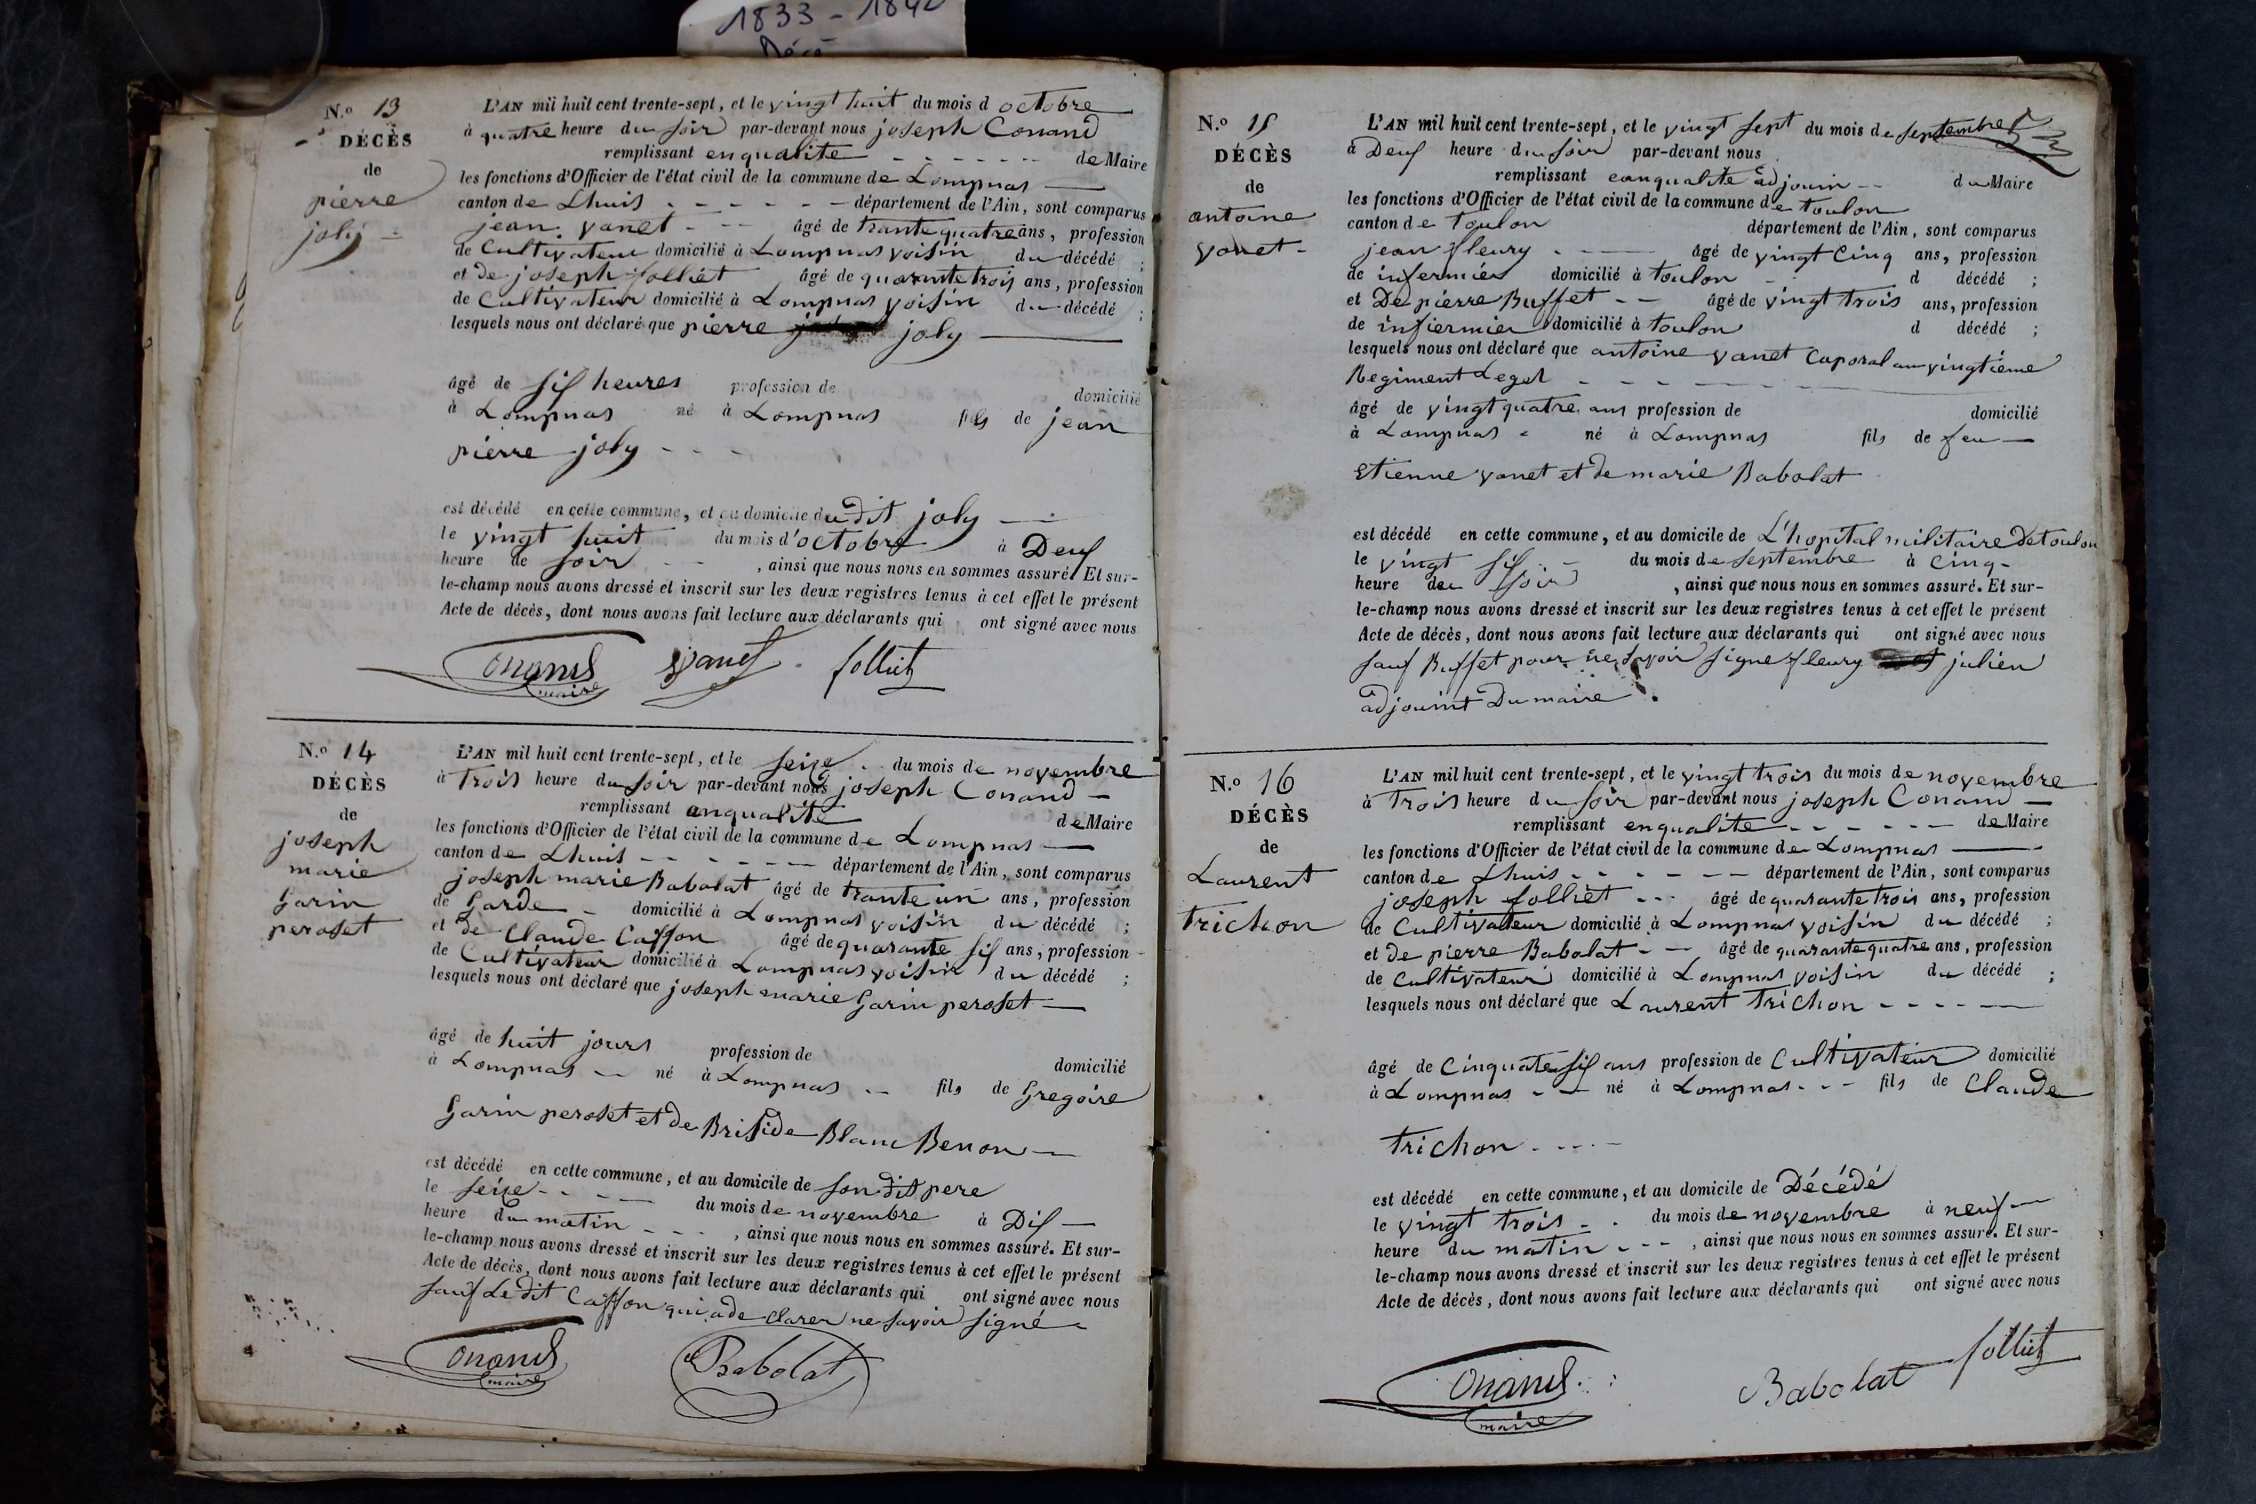 1833 - 1842
Décè
N.o 13
DÉCÈS
de
pierre
joly
L'AN mil huit cent trente-sept, et le vingt huit du mois d octobre
à quatre heure du soir par-devant nous joseph Conand
remplissant enqualite de Maire
les fonctions d'Officier de l'état civil de la commune de Lompnas
canton de Lhuis département de l'Ain, sont comparus
jean vanet âgé de trante quatre ans, profession
de Cultivateur domicilié à Lompnas voisin du décédé ;
et de joseph folliet âgé de quarante trois ans, profession
de Cultivateur domicilié à Lompnas voisin du décédé ;
lesquels nous ont déclaré que pierre joly
âgé de six heures profession de domicilié
à Lompnas né à Lompnas fils de jean
pierre joly
est décédé en cette commune, et au domicile dudit joly
le vingt huit du mois d'octobre à Deux
heure de soir , ainsi que nous nous en sommes assuré. Et sur-
le-champ nous avons dressé et inscrit sur les deux registres tenus à cet effet le présent
Acte de décès, dont nous avons fait lecture aux déclarants qui ont signé avec nous
Conand maire vanet folliet
N.o 14
DÉCÈS
de
joseph
marie
Garin
peroset
L'AN mil huit cent trente-sept, et le seize du mois de novembre
à Trois heure du soir par-devant nous joseph Conand
remplissant anqualite de Maire
les fonctions d'Officier de l'état civil de la commune de Lompnas
canton de Lhuis département de l'Ain, sont comparus
joseph marie Babolat âgé de trante un ans, profession
de Garde domicilié à Lompnas voisin du décédé ;
et de Claude Caffon âgé de quarante six ans, profession
de Cultivateur domicilié à Lompnas voisin du décédé ;
lesquels nous ont déclaré que joseph marie Garin peroset
âgé de huit jours profession de domicilié
à Lompnas né à Lompnas fils de Gregoire
Garin peroset et de Briside Blanc Benon
est décédé en cette commune, et au domicile de son dit pere
le seize du mois de novembre à Dix
heure du matin , ainsi que nous nous en sommes assuré. Et sur-
le-champ nous avons dressé et inscrit sur les deux registres tenus à cet effet le présent
Acte de décès, dont nous avons fait lecture aux déclarants qui ont signé avec nous
sauf Ledit Caffon qui a de clarer ne savoir signé
Conand maire Babolat
N.o 15
DÉCÈS
de
antoine
vanet
L'AN mil huit cent trente-sept, et le vingt sept du mois de septembre
à Deux heure du soir par-devant nous
remplissant eanqualite adjouin du Maire
les fonctions d'Officier de l'état civil de la commune de toulon
canton de toulon département de l'Ain, sont comparus
jean fleury âgé de vingt Cinq ans, profession
de infermier domicilié à toulon d décédé ;
et De pierre Buffet âgé de vingt trois ans, profession
de infiermier domicilié à toulon d décédé ;
lesquels nous ont déclaré que antoine vanet Caporal au vingtieme
Regiment Leger
âgé de vingt quatre ans profession de domicilié
à Lompnas né à Lompnas fils de feu
Etienne vanet et de marie Babolat
est décédé en cette commune, et au domicile de L'hopital militaire De toulon
le vingt six du mois de septembre à Cinq
heure deu soir , ainsi que nous nous en sommes assuré. Et sur-
le-champ nous avons dressé et inscrit sur les deux registres tenus à cet effet le présent
Acte de décès, dont nous avons fait lecture aux déclarants qui ont signé avec nous
sauf Buffet pour ne savoir signe fleury julien
adjouint Du maire
N.o 16
DÉCÈS
de
Laurent
trichon
L'AN mil huit cent trente-sept, et le vingt trois du mois de novembre
à Trois heure du soir par-devant nous joseph Conand
remplissant enqualite de Maire
les fonctions d'Officier de l'état civil de la commune de Lompnas
canton de Lhuis département de l'Ain, sont comparus
joseph folliet âgé de quarante trois ans, profession
de Cultivateur domicilié à Lompnas voisin du décédé ;
et de pierre Babolat âgé de quarante quatre ans, profession
de Cultivateur domicilié à Lompnas voisin du décédé ;
lesquels nous ont déclaré que Laurent trichon
âgé de Cinquate six ans profession de Cultivateur domicilié
à Lompnas né à Lompnas fils de Claude
trichon
est décédé en cette commune, et au domicile de Décédé
le vingt trois du mois de novembre à neuf
heure du matin , ainsi que nous nous en sommes assuré. Et sur-
le-champ nous avons dressé et inscrit sur les deux registres tenus à cet effet le présent
Acte de décès, dont nous avons fait lecture aux déclarants qui ont signé avec nous
Conand maire Babolat folliet